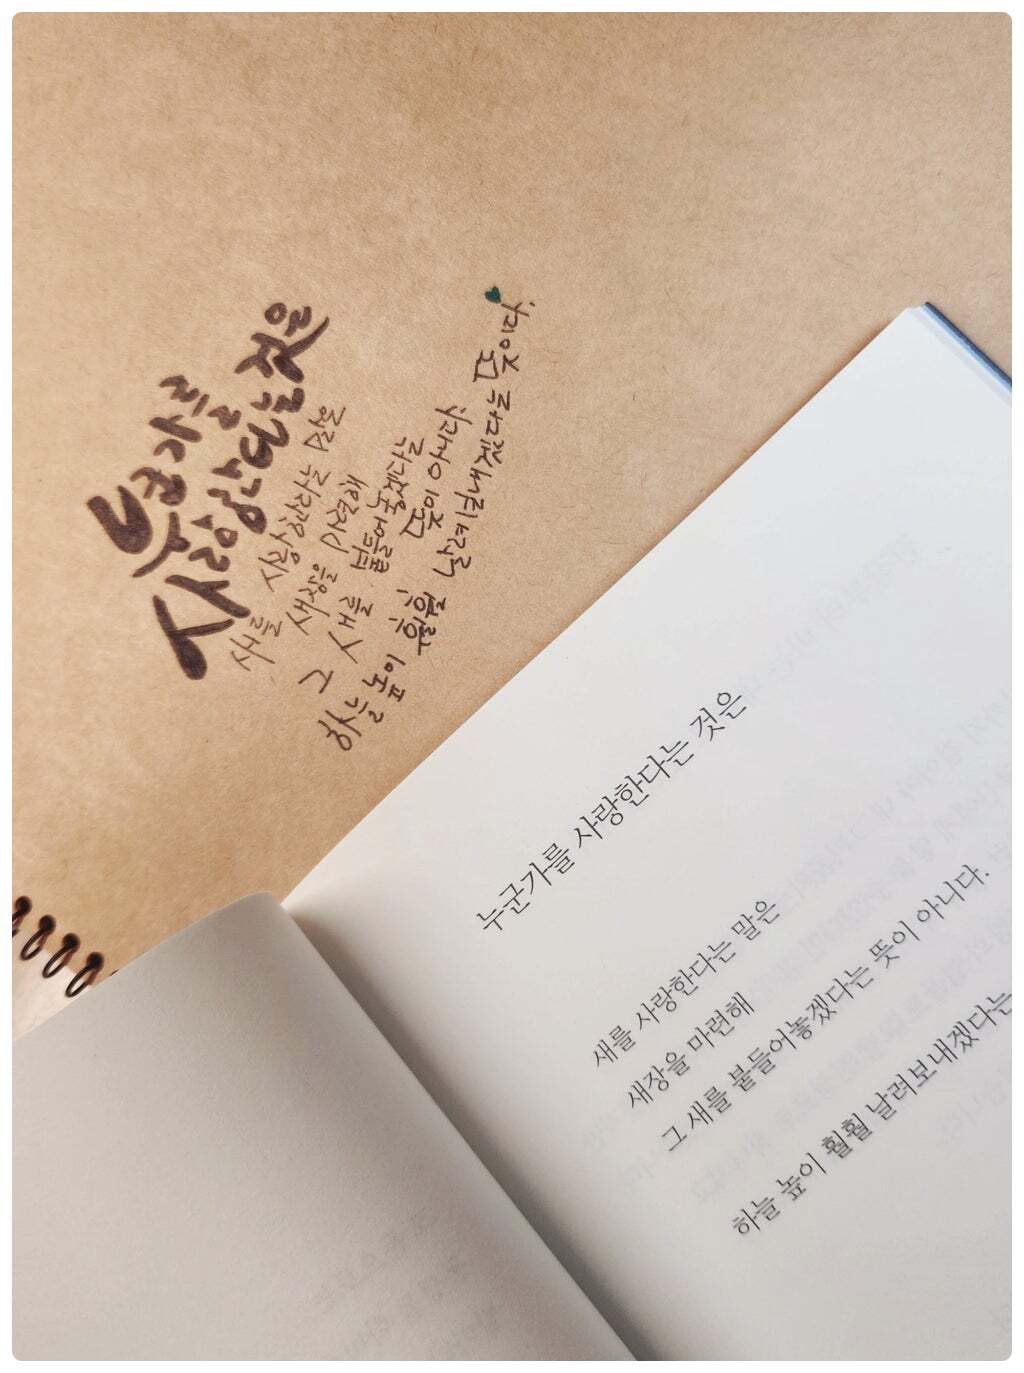 누군가를
사랑한다는 것은
새를 사랑한다는 말은
새장을 마련해
그 새를 붙들어놓겠다는
뜻이 아니다
하늘 높이 훨훨 날려보내겠다는 뜻이다.
누군가를 사랑한다는 것은
새를 사랑한다는 말은
새장을 마련해
그 새를 붙들어놓겠다는 뜻이 아니다.
하늘 높이 훨훨 날려보내겠다는